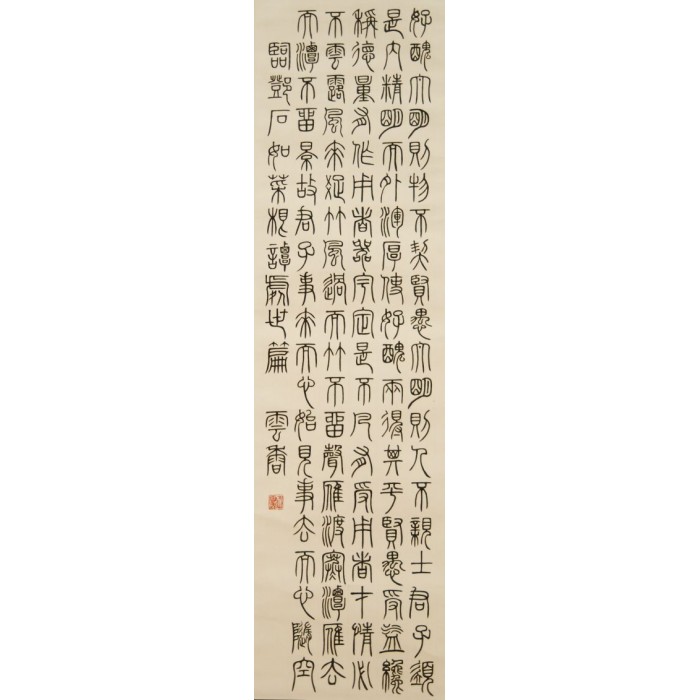 好醜心明則物不契賢愚心明則人不親士君子須
是內精明而外渾厚使好醜兩得其平賢愚受益纔
稱德量有作用者器宇定是不凡有受用者才情必
不露風來疏竹風過而竹不留聲雁渡寒潭雁去
而潭不留景故君子事來而心始見事去而心隨空
臨鄧石如菜根譚處世篇 雲